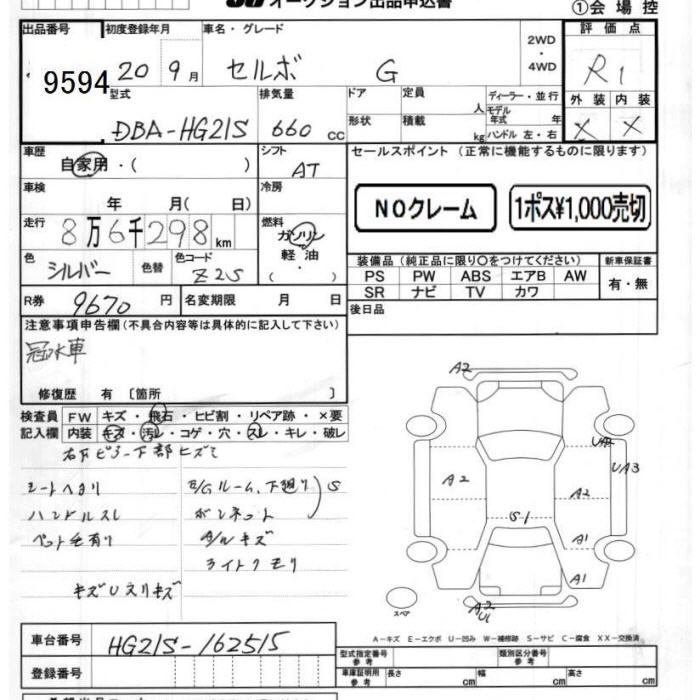 オークション出品申込書
①会場控
出品番号 初度登録年月 車名・グレード 2WD・4WD 評価点
9594 20 9月 セルボ G R1
型式 排気量 ドア 定員 人 ディーラー・並行 外装 内装
モデル年式 年
DBA-HG21S 660 cc 形状 積載 kg ハンドル 左・右 X X
車歴 シフト セールスポイント (正常に機能するものに限ります)
自家用・( ) AT
車検 冷房
年 月( 日) NOクレーム 1ポス¥1,000売切
走行 燃料
8万6千298 km ガソリン
軽油
( )
色 色替 色コード 装備品 (純正品に限り○をつけてください) 新車保証書
シルバー Z2S PS PW ABS エアB AW 有・無
R券 9670 円 名変期限 月 日 SR ナビ TV カワ
後日品
注意事項申告欄(不具合内容等は具体的に記入して下さい)
冠水車
修復歴 有 〔箇所 〕
検査員 FW キズ・飛石・ヒビ割・リペア跡・×要
記入欄 内装 キズ・汚レ・コゲ・穴・スレ・キレ・破レ
右Fピラー下部ヒズミ
シートヘタリ E/Gルーム、下廻り S
ハンドルスレ ボンネット
ペット毛有り A/Wキズ
ライトクモリ
キズUスリキズ
A2
UA2
UA3
A2
A2
S1
A1
A1
A2
UL
スペア
A-キズ E-エクボ U-凹み W-補修跡 S-サビ C-腐食 XX-交換済
車台番号 HG21S-162515
型式指定番号 参考 類別区分番号 参考
登録番号 車庫証明用 参考 長さ cm 幅 cm 高さ cm